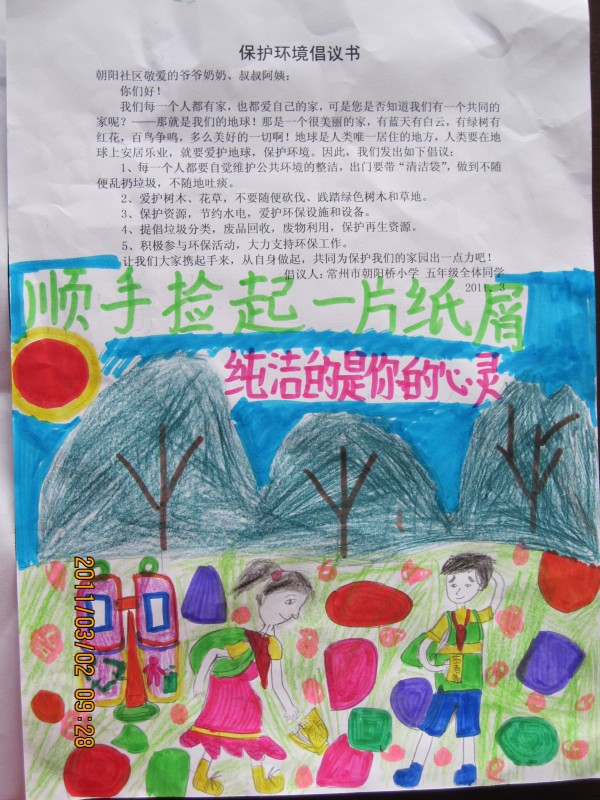 保护环境倡议书
朝阳社区敬爱的爷爷奶奶、叔叔阿姨：
你们好！
我们每一个人都有家，也都爱自己的家，可是您是否知道我们有一个共同的
家呢？——那就是我们的地球！那是一个很美丽的家，有蓝天有白云，有绿树有
红花，百鸟争鸣，多么美好的一切啊！地球是人类唯一居住的地方，人类要在地
球上安居乐业，就要爱护地球，保护环境。因此，我们发出如下倡议：
1、每一个人都要自觉维护公共环境的整洁，出门要带“清洁袋”，做到不随
便乱扔垃圾，不随地吐痰。
2、爱护树木、花草，不要随便砍伐、践踏绿色树木和草地。
3、保护资源，节约水电，爱护环保设施和设备。
4、提倡垃圾分类，废品回收，废物利用，保护再生资源。
5、积极参与环保活动，大力支持环保工作。
让我们大家携起手来，从自身做起，共同为保护我们的家园出一点力吧！
倡议人：常州市朝阳桥小学 五年级全体同学
2011、3
顺手捡起一片纸屑
纯洁的是你的心灵
2011/03/02 09:28